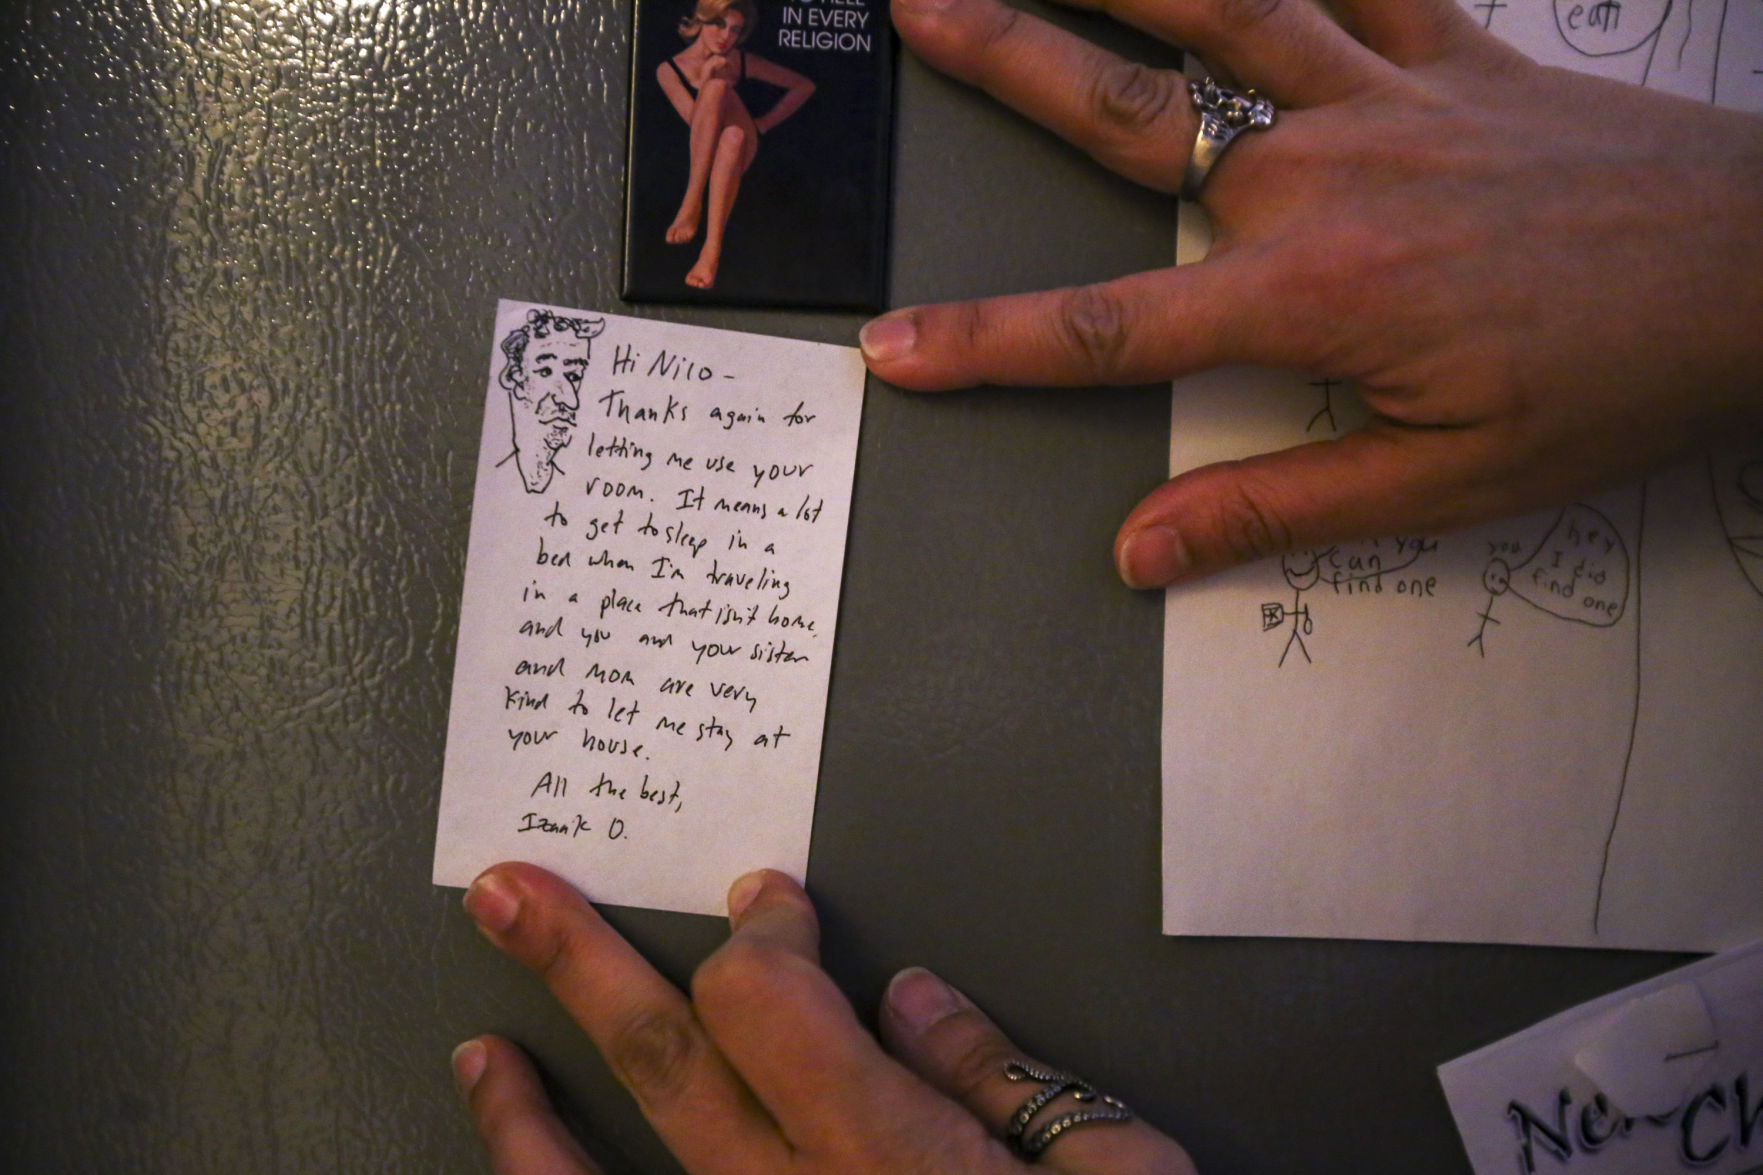 IN EVERY
RELIGION
Hi Nico -
Thanks again for
letting me use your
room. It means a lot
to get to sleep in a
bed when I'm traveling
in a place that isn't home,
and you and your sister
and mom are very
kind to let me stay at
your house.
All the best,
Izaak O.
eat
you
can
find one
you
hey
I did
find one